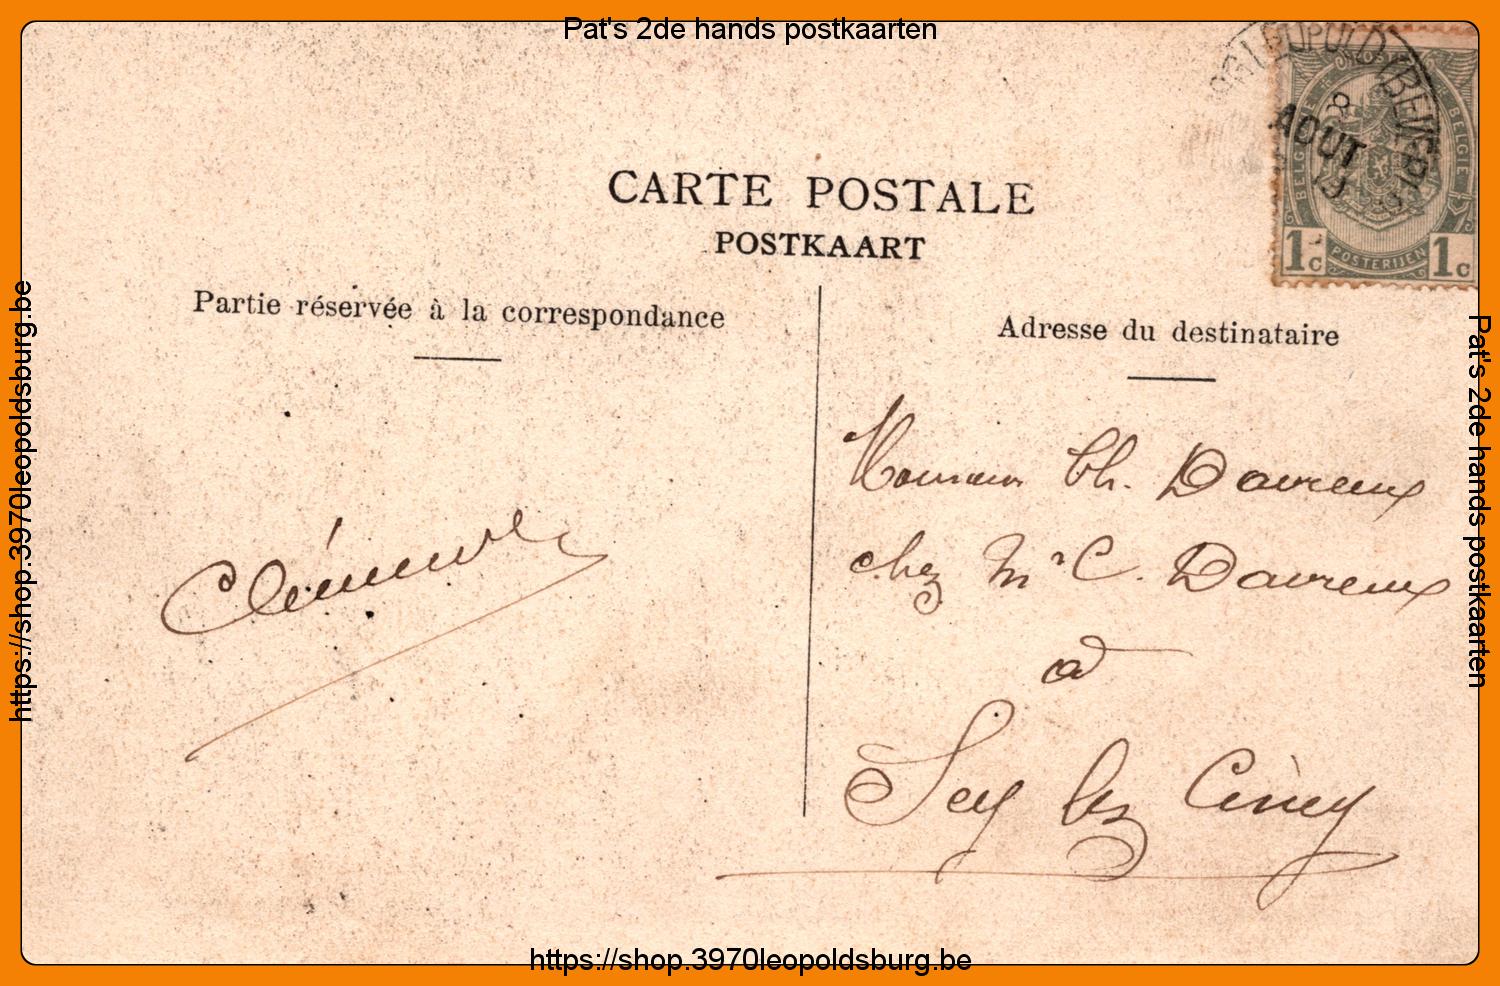 Pat's 2de hands postkaarten
BOURG LEOPOLD (BEVERLO
8
AOUT
BELGIQUE
BELGIE
1c
POSTERIJEN
1c
CARTE POSTALE
POSTKAART
Partie réservée à la correspondance
Adresse du destinataire
Monsieur Ch. Davreux
chez Mr C. Davreux
à
Sey lez Ciney
Clément
https://shop.3970leopoldsburg.be
Pat's 2de hands postkaarten
https://shop.3970leopoldsburg.be